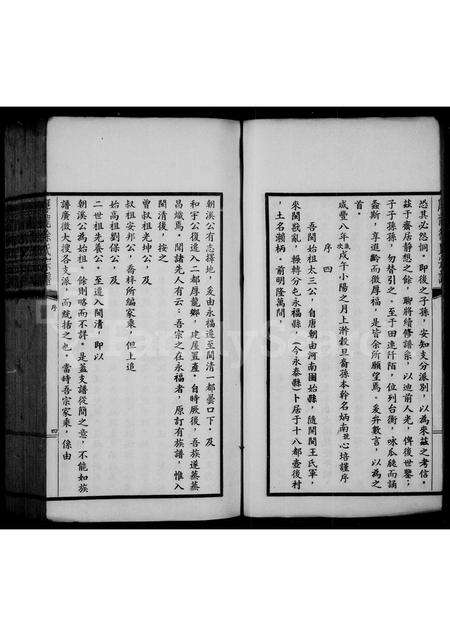 恐其必然惘。即後之子孫，安知支分派別，以為來茲之考信。
茲于齋居静想之餘，聊將續修譜系，以迪前人光，俾後世鑒；
子子孫孫，勿替引之。至于田連阡陌，位列台衡，咏瓜瓞而誦
螽斯，享遐齡而微厚福，是皆余所顧望焉。爰弁數言，以為之
首。
咸豐八年歲次戊午小陽之月上澣穀旦裔孫本幹名炳南丑心培謹序
序四
吾閩始祖太三公，自唐朝由河南固始縣，隨閩王氏軍，
來閩敉亂。輾轉分屯永福縣，（今永泰縣卜居于十八都壺後村
，土名瀨柄。前明隆萬間，
朝溪公有志擇地，爰由永福遷至閩清一都臺口下。及
和宇公復遷入二都厚龍鄉，建屋置產。自時厥後，吾族遂蒸蒸
昌熾焉。聞諸先人有云：吾宗之在永福者，原訂有族譜，惟入
閩清後，按之
曾叔祖光坤公，及
叔祖安邦公，喬梓所編家乘，但上追
始高祖劉保公，及
二世祖先養公。至遷入閩清，即以
朝溪公為始祖。餘則略而不詳。是蓋支譜從簡之意，不能如族
譜廣徵大搜各支派，而統括之也。當時吾宗家乘，係由
序
四